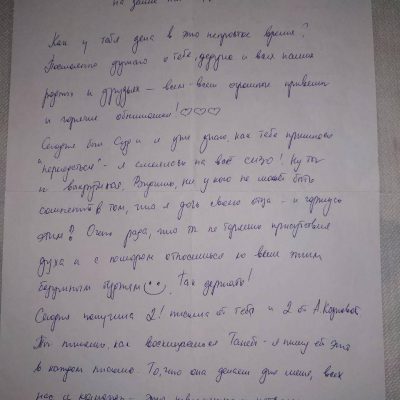 Как у тебя дела в это непростое время?
Постоянно думаю о тебе, дедуле и всех наших
родных и друзьях – всем-всем огромные приветы
и горячие обнимашки! ♡♡♡
Сегодня был суд и я уже знаю, как тебе пришлось
"переодеться" - я смеялась на всё СИЗО! Ну ты
и
не может быть
сомнений в том, что я дочь своего отца - и горжусь
этим! Очень рада, что ты не теряешь присутствия
духа и с юмором относишься ко всем этим
безумным . Так держать!
Сегодня получила 2! письма от тебя и 2 от А.
Ты пишешь, как восхищаешься Таней - я пишу ей это
в каждом письме. То, что она делает для меня, всех
нас и